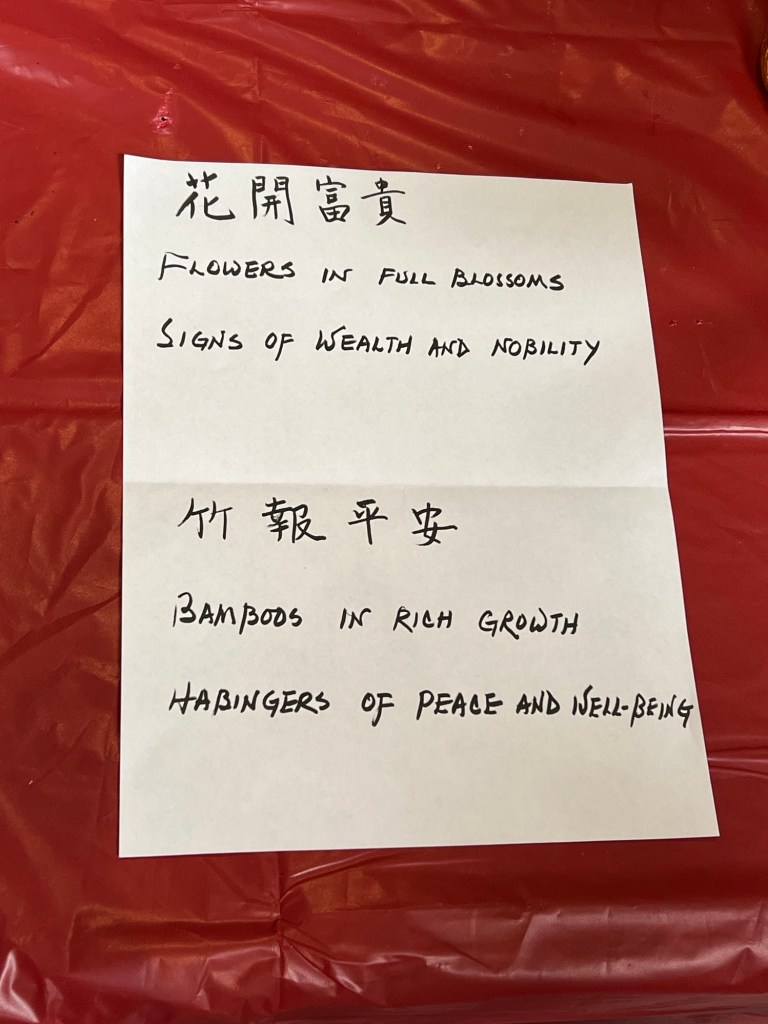 花開富貴
FLOWERS IN FULL BLOSSOMS
SIGNS OF WEALTH AND NOBILITY
竹報平安
BAMBOOS IN RICH GROWTH
HABINGERS OF PEACE AND WELL-BEING